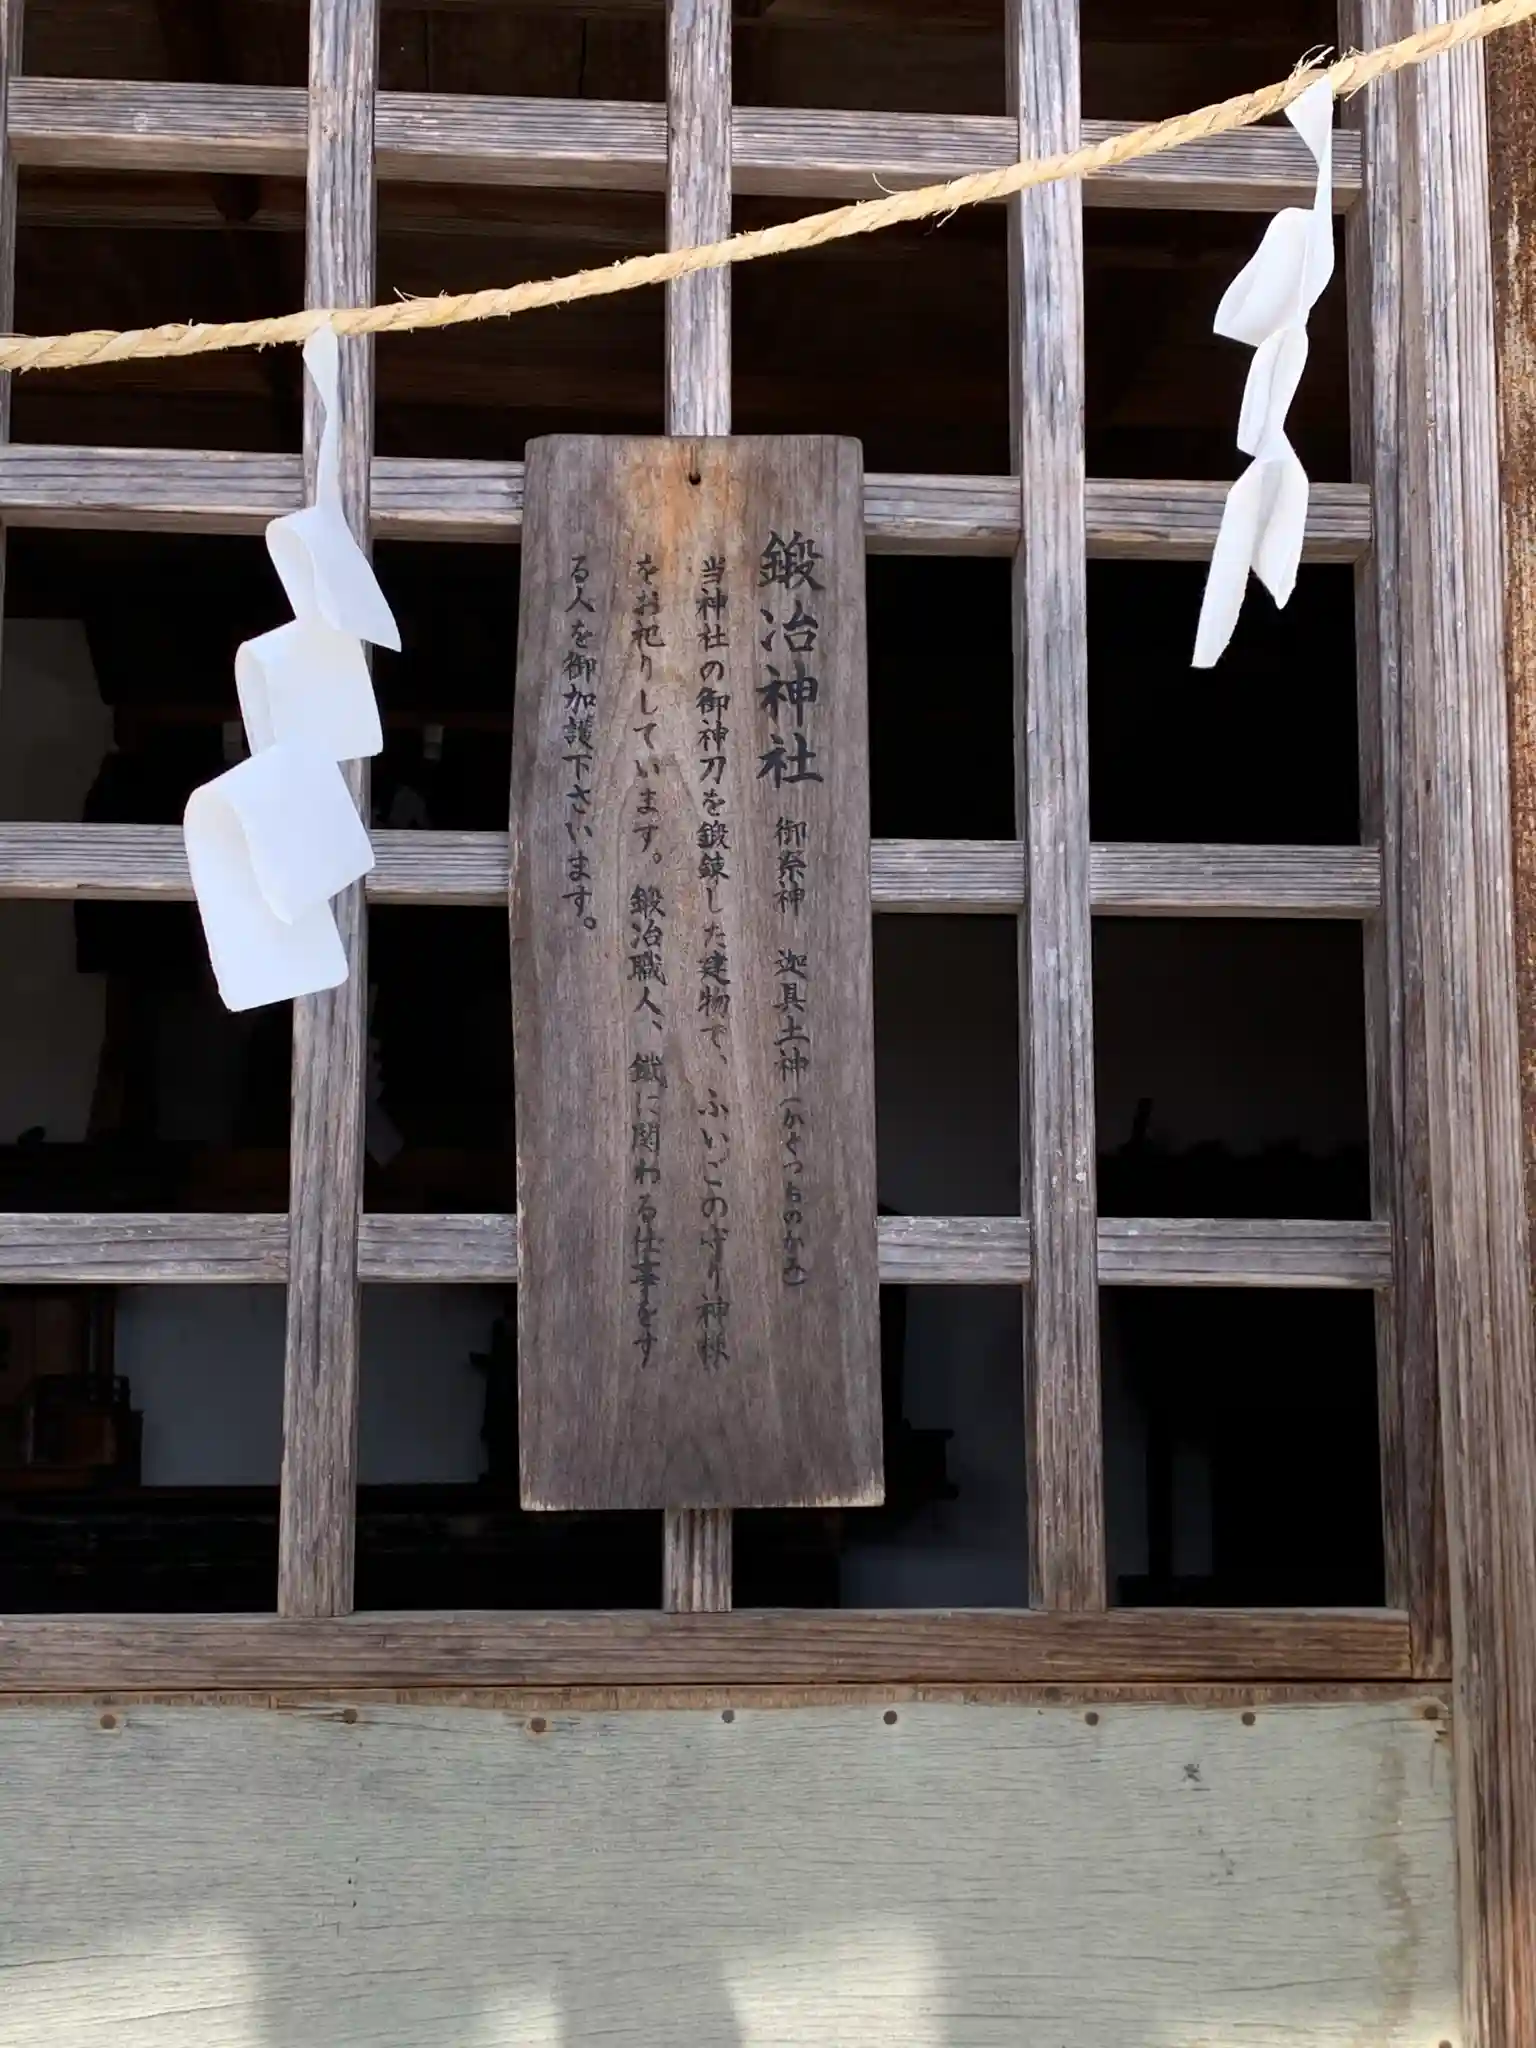 鍛冶神社 御祭神 迦具土神(かぐつちのかみ)
当神社の御神刀を鍛錬した建物で、ふいごの守り神様
をお祀りしています。鍛冶職人、鐵に関わる仕事をす
る人を御加護下さいます。